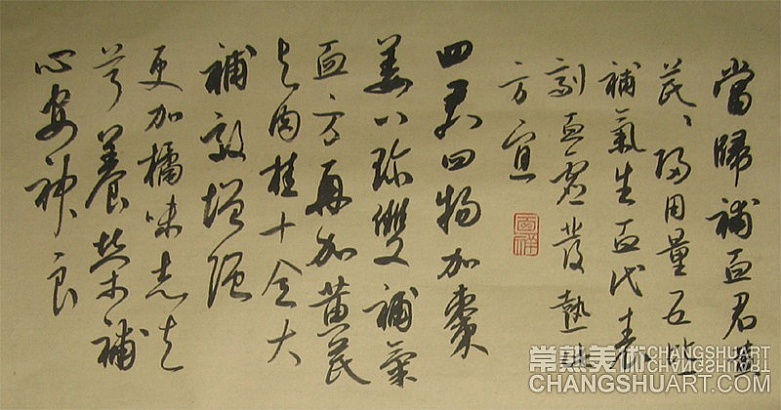 當歸補血君黃
芪、歸用量五比
補氣生血代表
劑血虛發熱
方宜
四君四物加棗
姜八珍雙補氣
血方再加黃芪
肉桂十全大
補效增强
更加橘味志去
芎養榮補
心安神良
常熟美術 CHANGSHUART
CHANGSHUART.COM